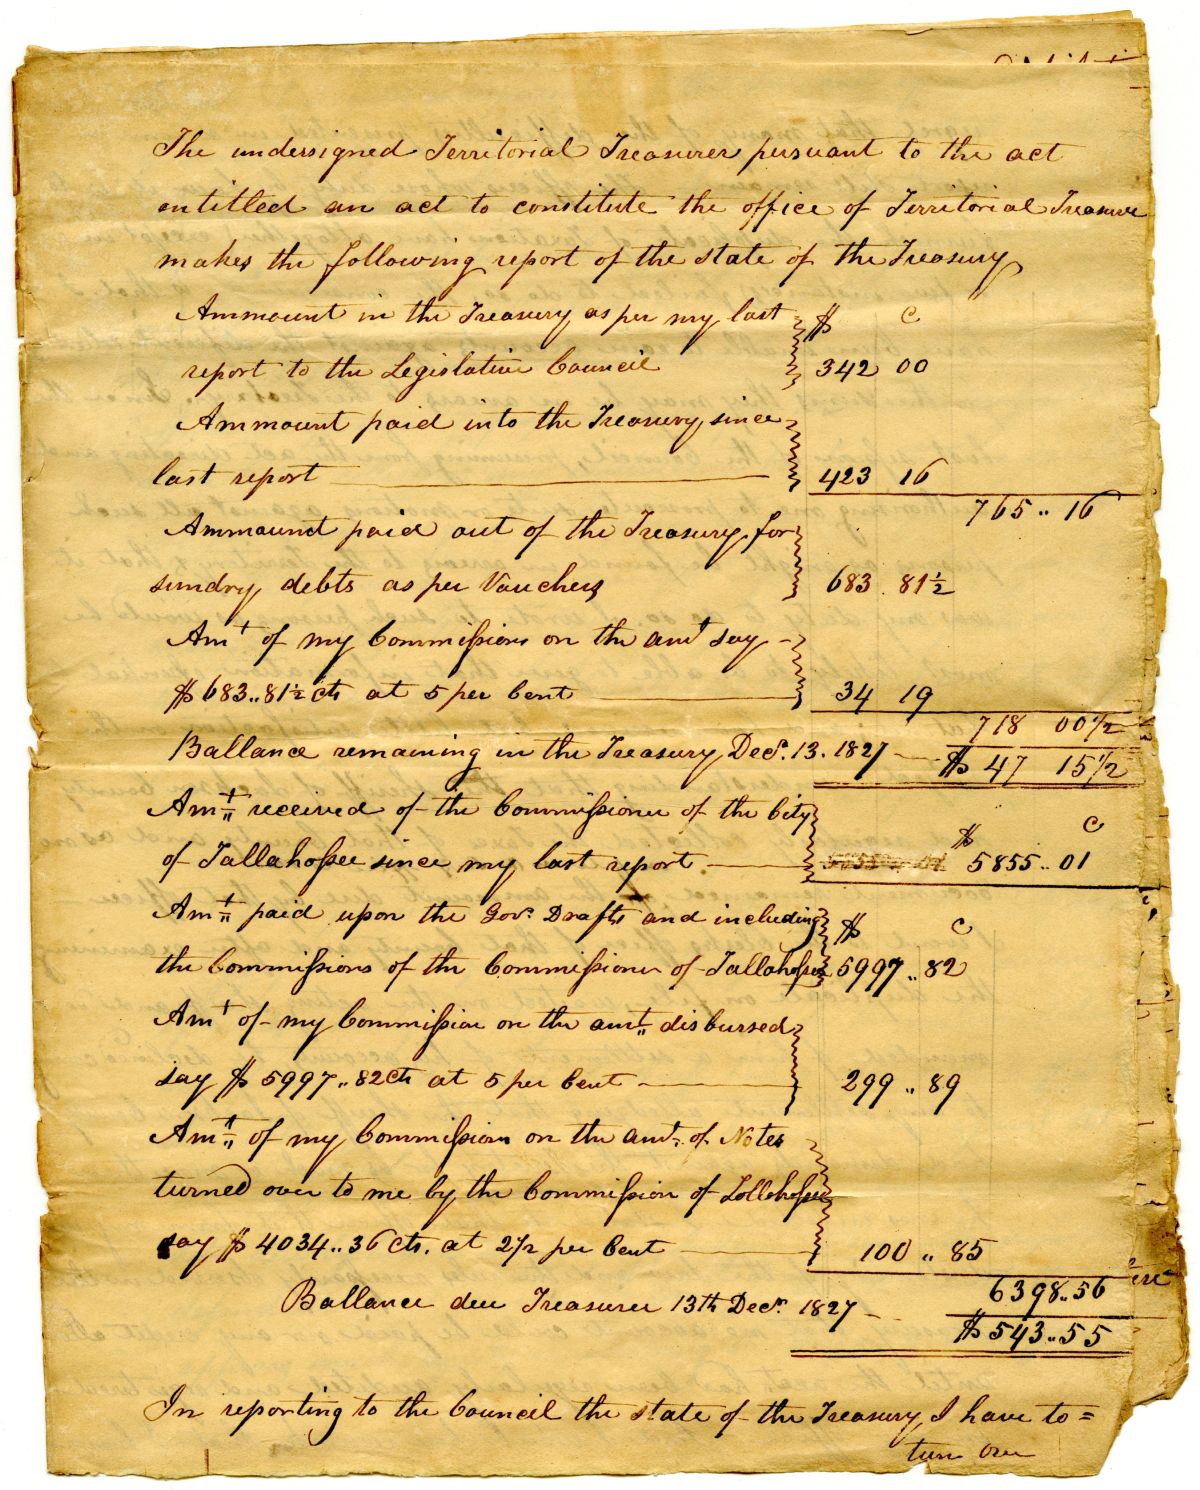 The undersigned Territorial Treasurer persuant to the act
entitled an act to constitute the office of Territorial Treasure
makes the following report of the state of the Treasury
Ammount in the Treasury as per my last $ C
report to the Legislative Council 342 00
Ammount paid into the Treasury since
last report 423 16
765 .. 16
Ammount paid out of the Treasury for
sundry debts as per Vouchers 683 . 81½
Amt of my Commissions on the amt say
$ 683 .. 81½ cts at 5 per Cent 34 19
718 00½
Ballance remaining in the Treasury Decr. 13. 1827 $ 47 15½
Amt received of the Commissioner of the City $ C
of Tallahassee since my last report 5855 .. 01
Amt paid upon the Govr. Drafts and including $ C
the Commissions of the Commissioner of Tallahassee 5997 .. 82
Amt of my Commission on the amt disbursed
say $ 5997 .. 82 cts at 5 per Cent 299 .. 89
Amt of my Commission on the amt. of Notes
turned over to me by the Commission of Tallahassee
say $ 4034 .. 36 cts. at 2½ per Cent 100 .. 85
6398 .. 56
Ballance due Treasurer 13th Decr. 1827 $ 543 .. 55
In reporting to the Council the state of the Treasury, I have to =
turn over